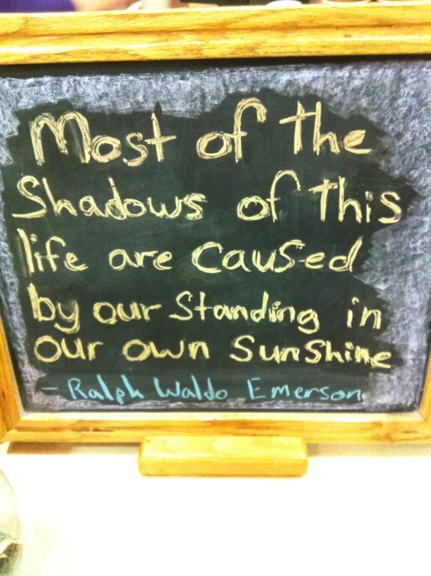 Most of the
Shadows of This
life are caused
by our Standing in
our own Sunshine
- Ralph Waldo Emerson